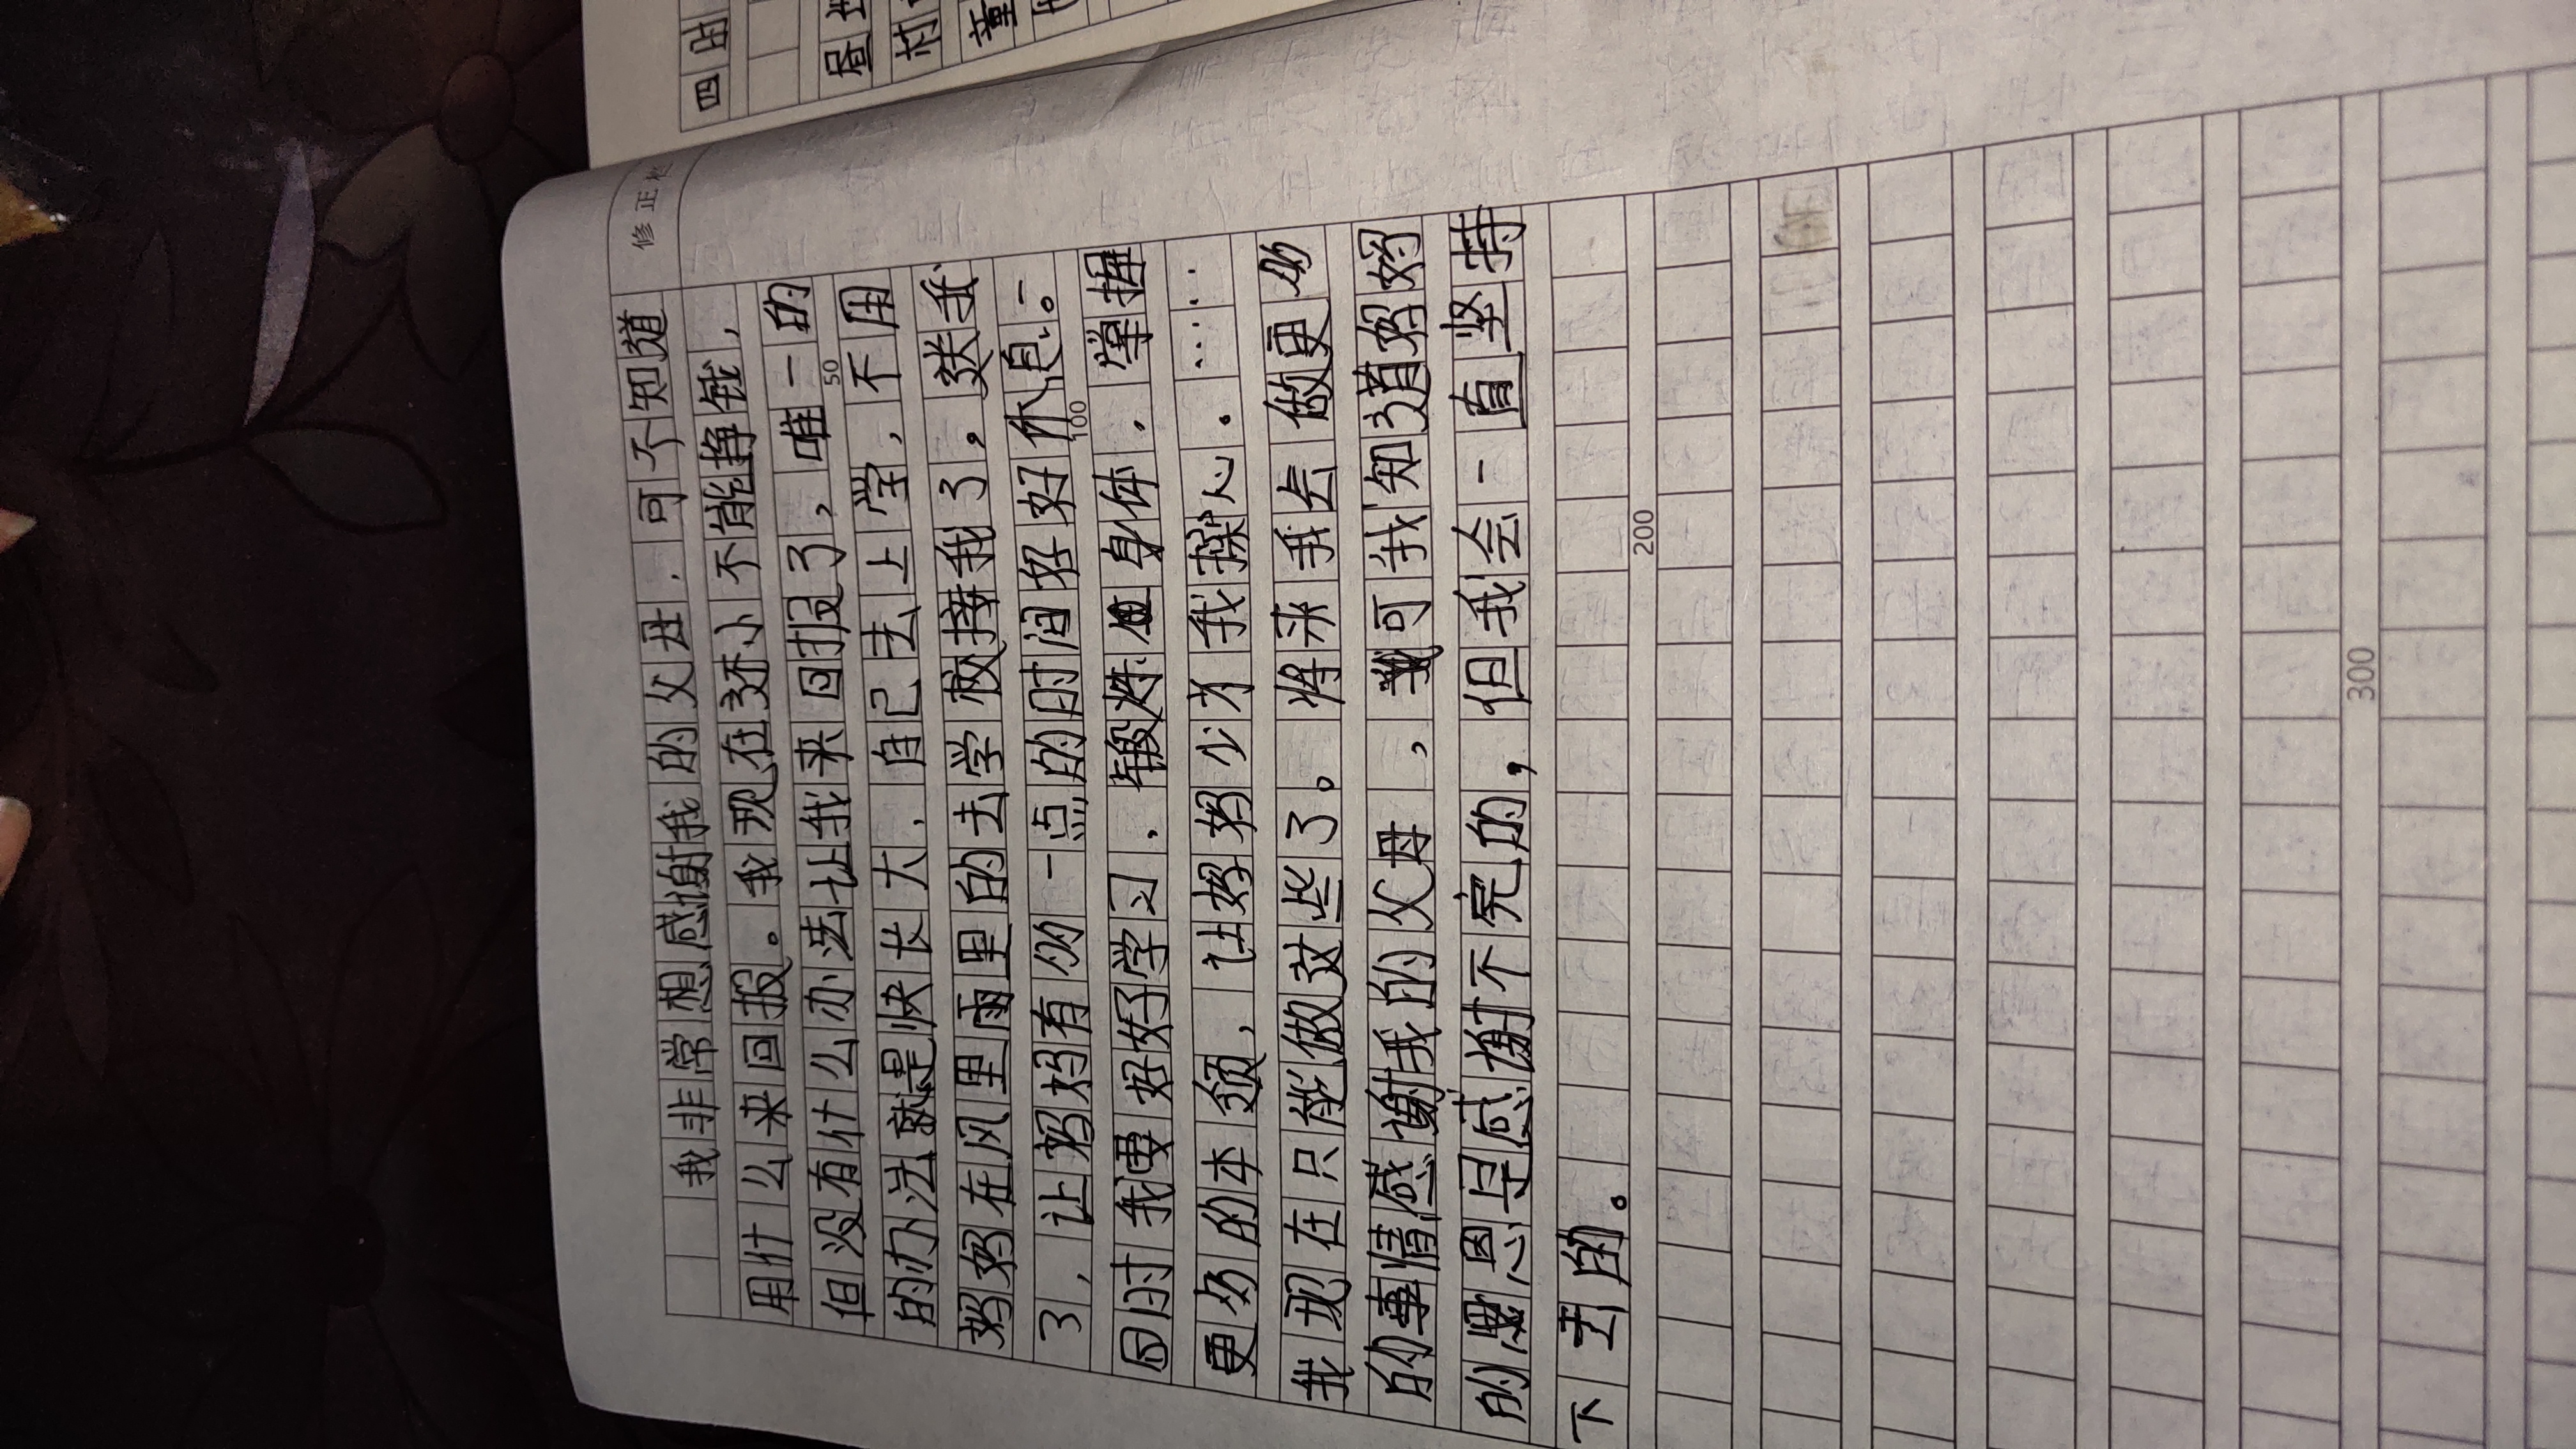 我非常想感谢我的父母，可不知道
用什么来回报。我现在还小不能挣钱，
但没有什么办法让我来回报了，唯一的
的办法就是快长大，自己去上学，不用
妈妈在风里雨里的去学校接我了。送我
了，让妈妈有多一点的时间好好休息。
同时我要好好学习，锻炼身体，掌握
更多的本领，让妈妈少为我操心。……
我现在只能做这些了。将来我会做更多
的事情感谢我的父母，可我知道妈妈
的恩是感谢不完的，但我会一直坚持
下去的。
修正
50
100
200
300
四时
昼
村
童